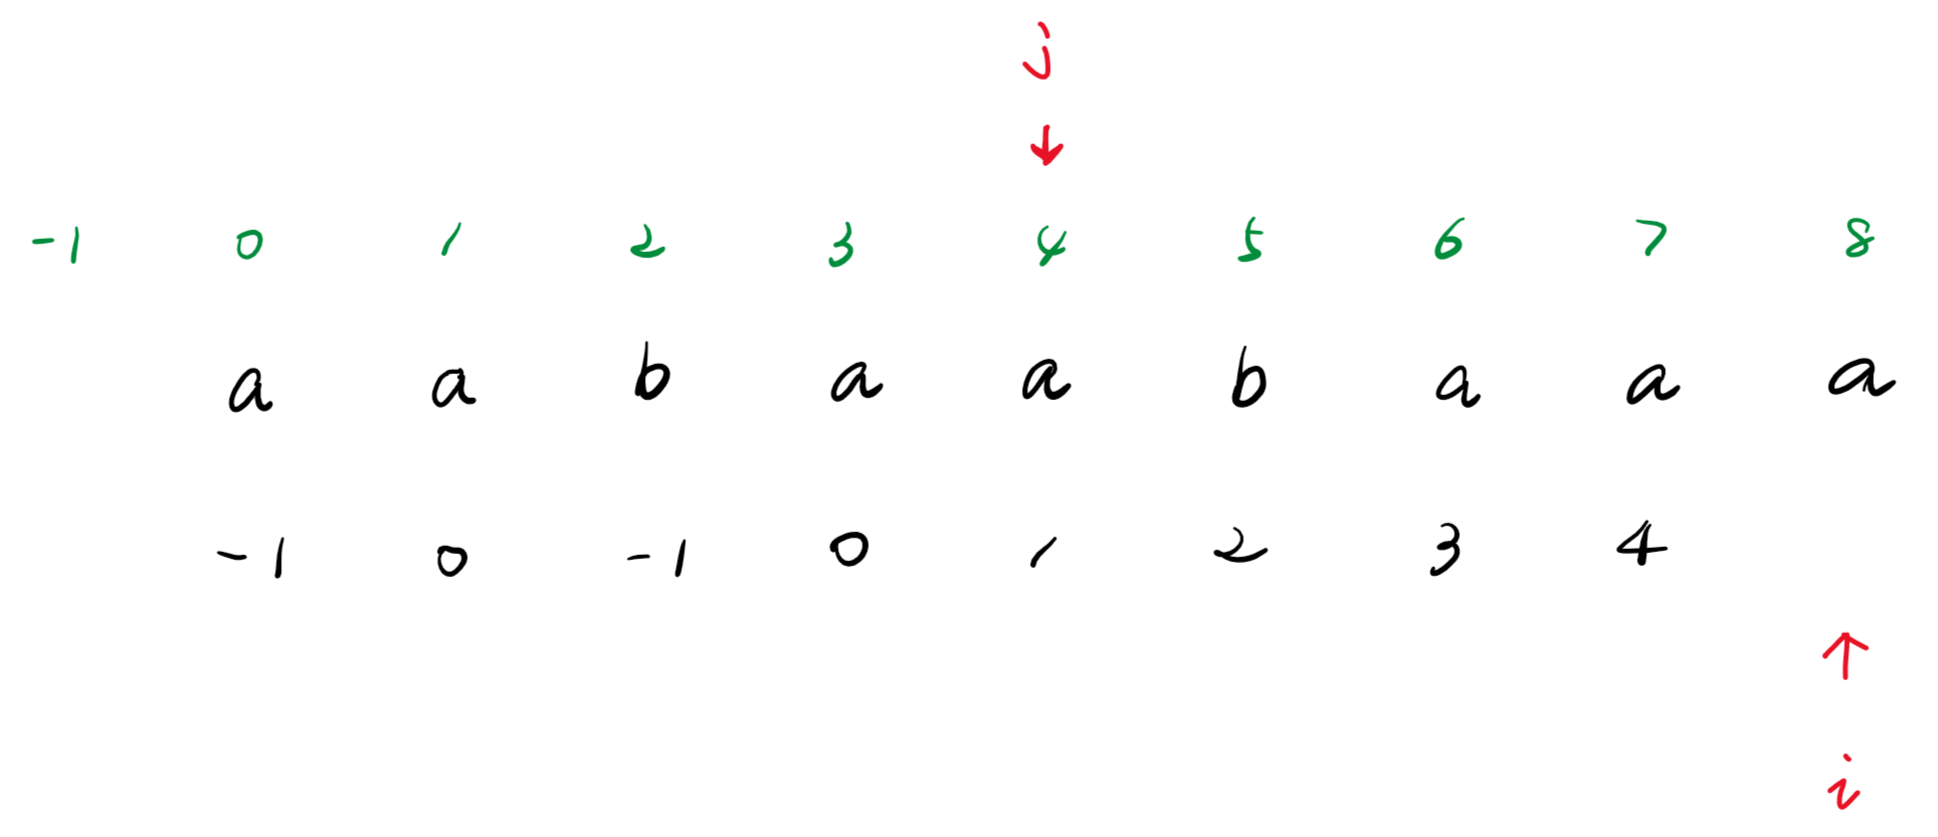 j
↓
-1 0 1 2 3 4 5 6 7 8
a a b a a b a a a
-1 0 -1 0 1 2 3 4
↑
i